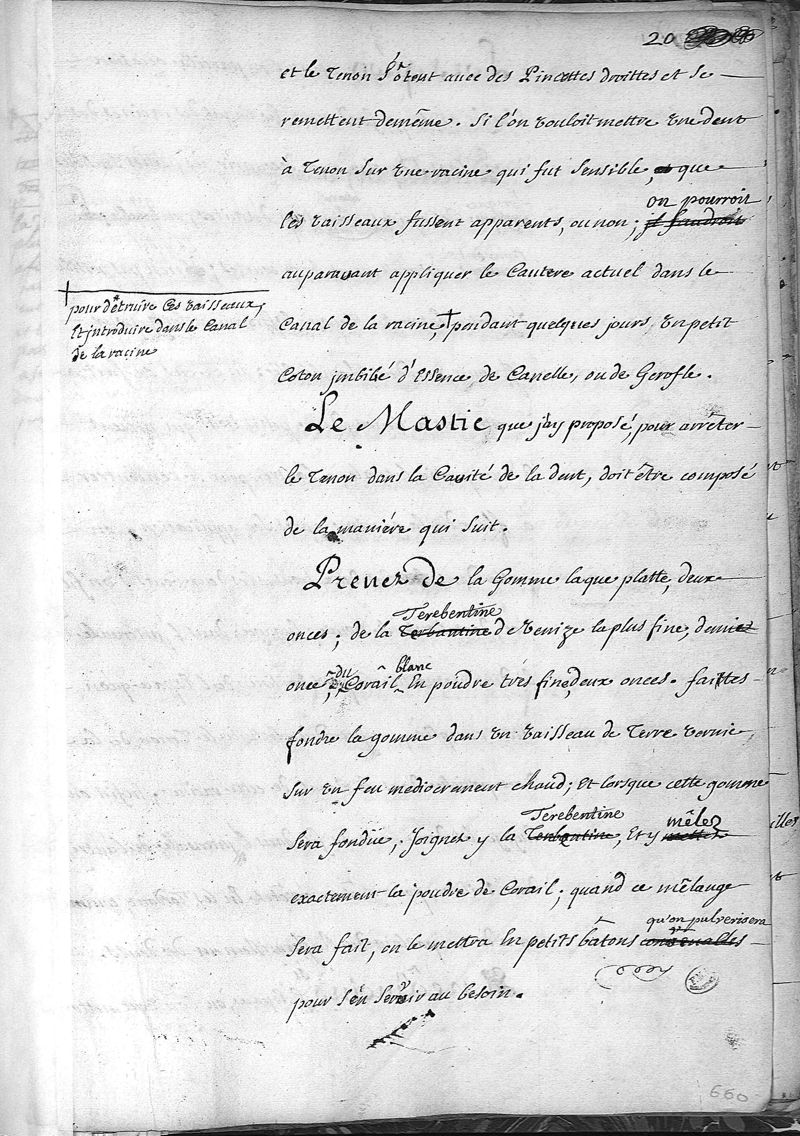 20
et le Tenon s'otent avec des Pincettes droittes et se
remettent demême. Si l'on vouloit mettre une dent
à Tenon sur une racine qui fut sensible, que
on pourroit
les vaisseaux fussent apparents, ou non; il faudroit
auparavant appliquer le Cautere actuel dans le
pour détruire Ces vaisseaux,
Et introduire dans le Canal
de la racine
Canal de la racine, † pendant quelques jours, un petit
Coton imbibé d'Essence, de Canelle, ou de Gerofle.
Le Mastic que j'ay proposé, pour arrêter
le Tenon dans la Cavité de la dent, doit être composé
de la maniére qui suit.
Prenez de la Gomme laque platte, deux
Terebentine
onces; de la Terbantine de Venize la plus fine, demie
du blanc
once, Corail En poudre tres fine, deux onces. faittes
fondre la gomme dans un vaisseau de Terre vernie,
sur un feu mediocrement chaud; Et lorsque cette gomme
Terebentine mêlez
sera fondüe, Joignez y la Terbantine, Et y mettez
exactement la poudre de Corail; quand ce mêlange
qu'on pulverisera
sera fait, on le mettra En petits bâtons
pour s'en servir au besoin.
660